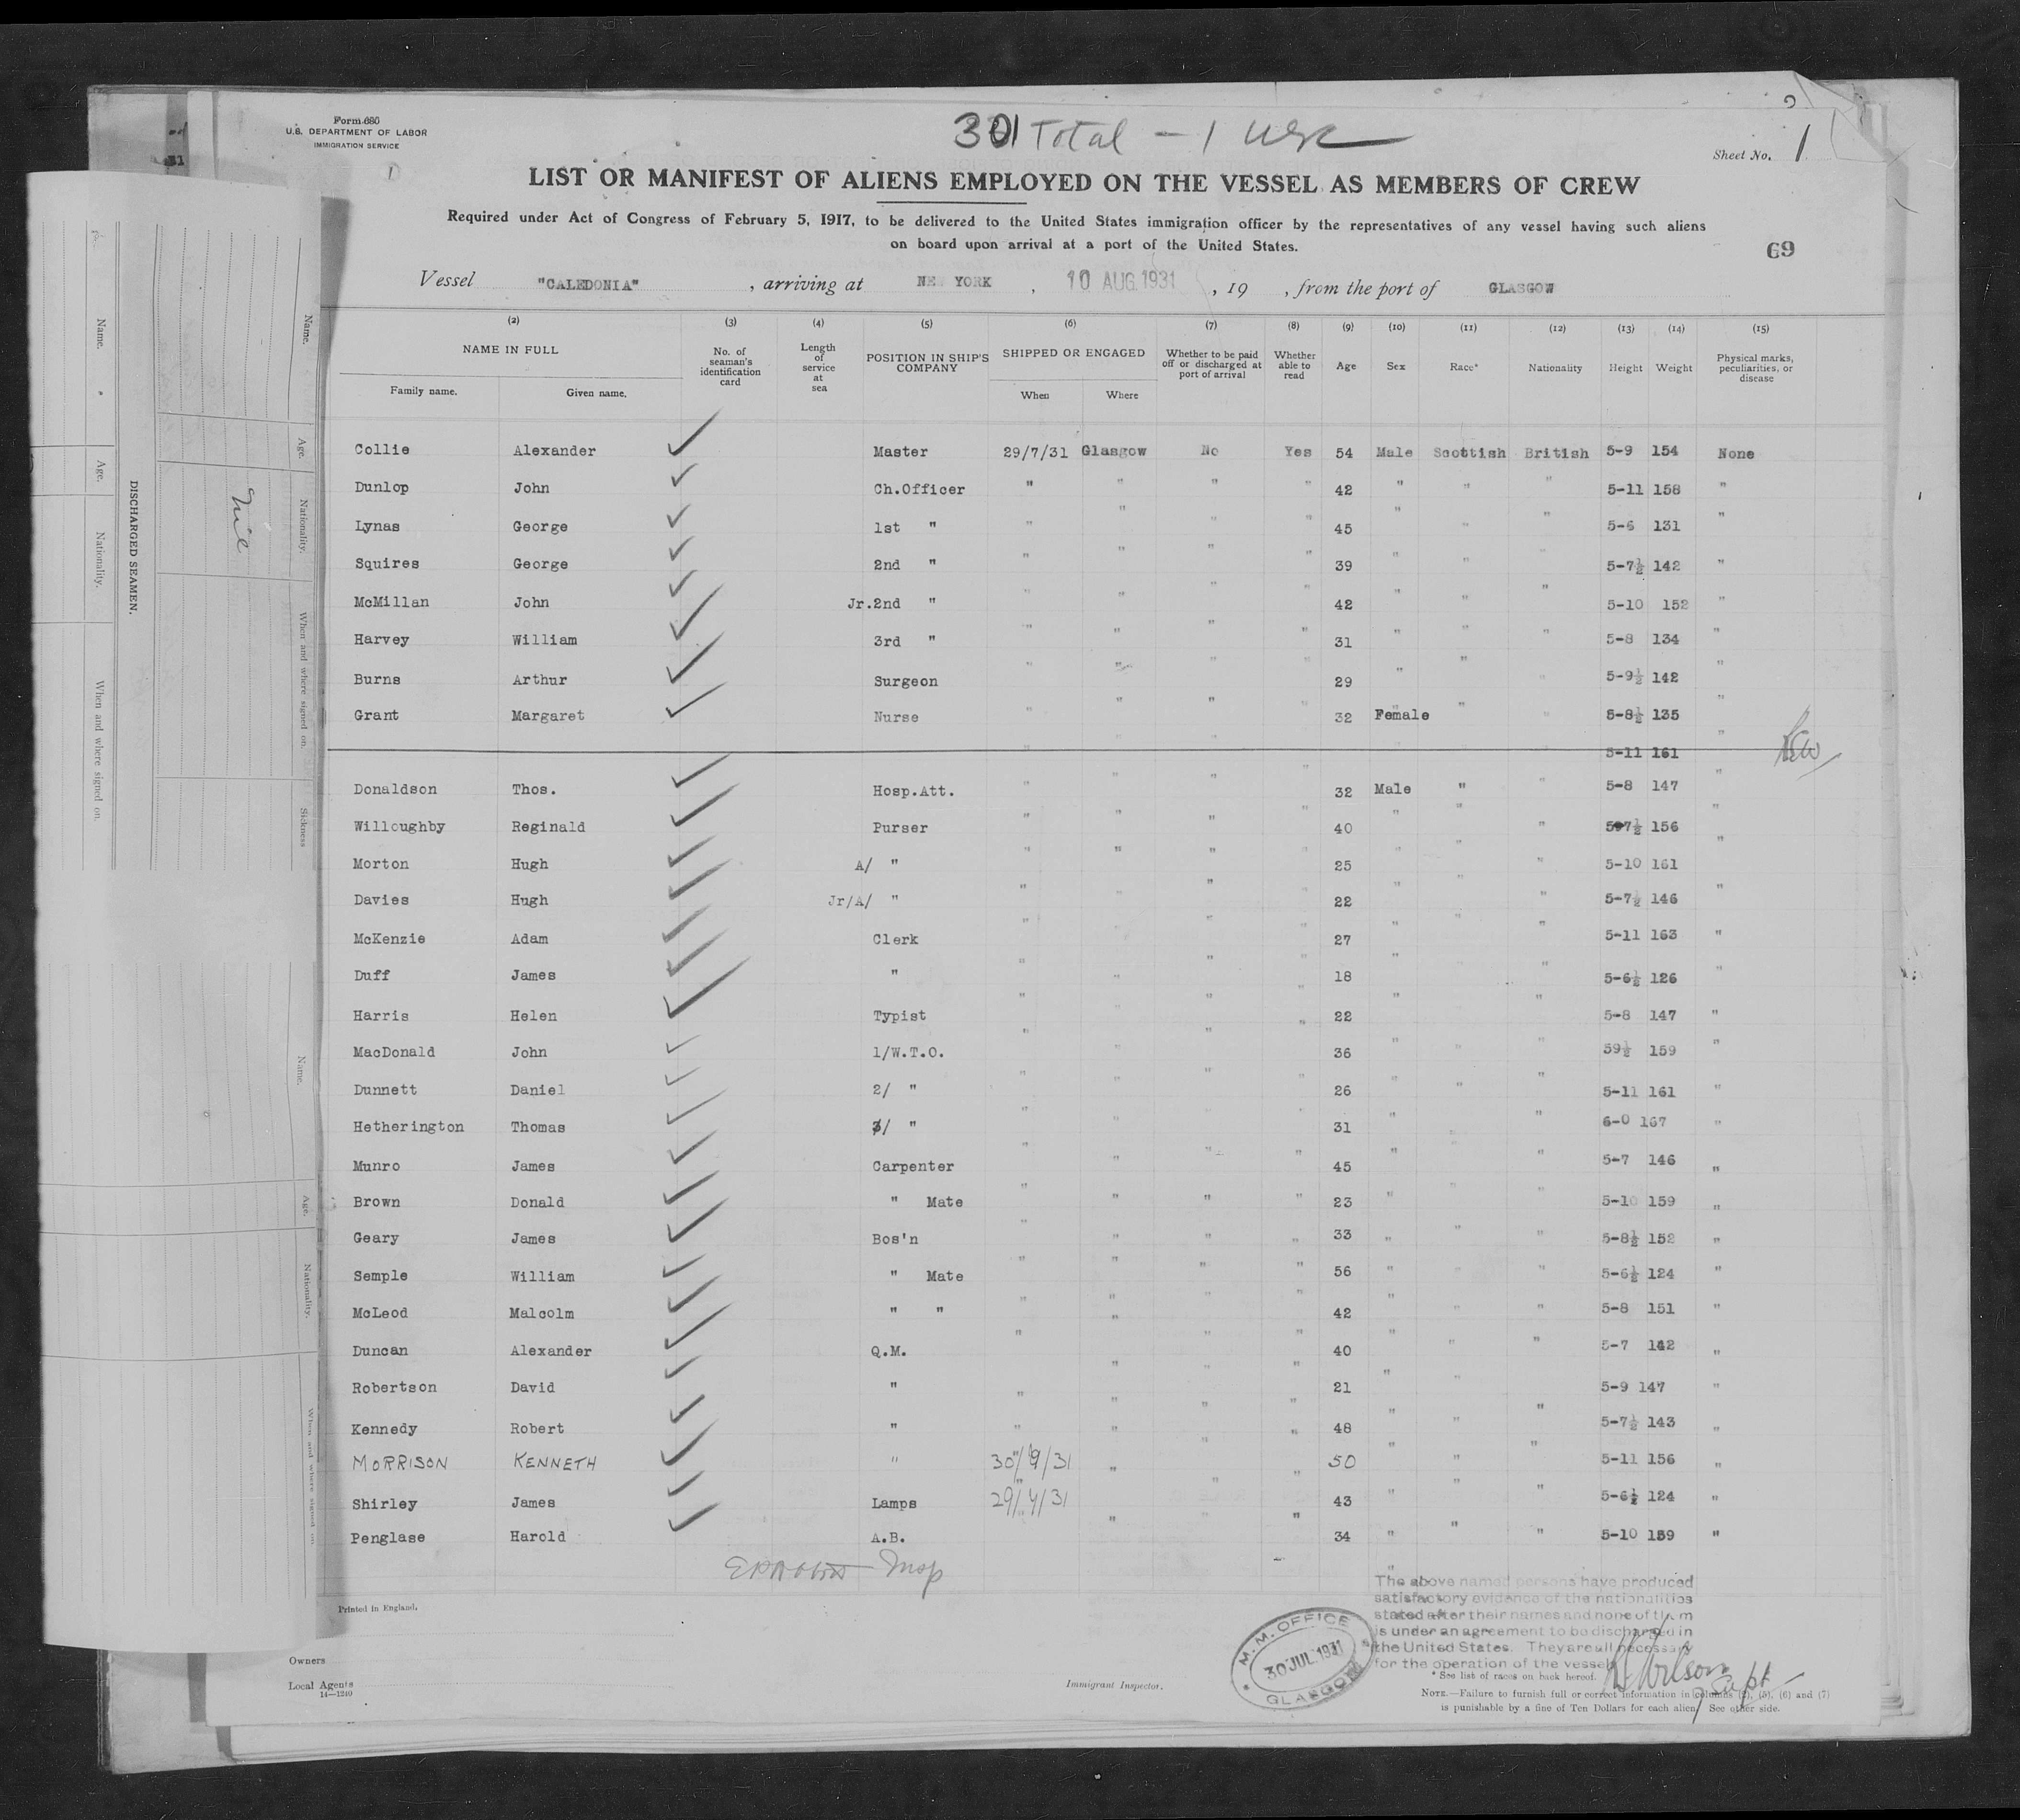 Form 680
U.S. DEPARTMENT OF LABOR
IMMIGRATION SERVICE
301 Total — 1
Sheet No. 1
LIST OR MANIFEST OF ALIENS EMPLOYED ON THE VESSEL AS MEMBERS OF CREW
Required under Act of Congress of February 5, 1917, to be delivered to the United States immigration officer by the representatives of any vessel having such aliens
on board upon arrival at a port of the United States.
69
Vessel "CALEDONIA" , arriving at NEW YORK , 10 AUG 1931 , 19 , from the port of GLASGOW
(2) (3) (4) (5) (6) (7) (8) (9) (10) (11) (12) (13) (14) (15)
NAME IN FULL Family name. Given name. No. of seaman's identification card Length of service at sea POSITION IN SHIP'S COMPANY SHIPPED OR ENGAGED When Where Whether to be paid off or discharged at port of arrival Whether able to read Age Sex Race* Nationality Height Weight Physical marks, peculiarities, or disease
Collie Alexander Master 29/7/31 Glasgow No Yes 54 Male Scottish British 5-9 154 None
Dunlop John Ch.Officer " " " " 42 " " " 5-11 158 "
Lynas George 1st " " " " " 45 " " " 5-6 131 "
Squires George 2nd " " " " " 39 " " " 5-7½ 142 "
McMillan John Jr.2nd " " " " " 42 " " " 5-10 152 "
Harvey William 3rd " " " " " 31 " " " 5-8 134 "
Burns Arthur Surgeon " " " " 29 " " " 5-9½ 142 "
Grant Margaret Nurse " " " " 32 Female " " 5-8½ 135 "
5-11 161 "
Donaldson Thos. Hosp.Att. " " " " 32 Male " " 5-8 147 "
Willoughby Reginald Purser " " " " 40 " " " 5-7½ 156 "
Morton Hugh A/ " " " " " 25 " " " 5-10 161 "
Davies Hugh Jr/A/ " " " " " 22 " " " 5-7½ 146 "
McKenzie Adam Clerk " " " " 27 " " " 5-11 163 "
Duff James " " " " " 18 " " " 5-6½ 126 "
Harris Helen Typist " " " " 22 " " 5-8 147 "
MacDonald John 1/W.T.O. " " " " 36 " " " 59½ 159 "
Dunnett Daniel 2/ " " " " " 26 " " " 5-11 161 "
Hetherington Thomas 3/ " " " " " 31 " " " 6-0 167 "
Munro James Carpenter " " " " 45 " " " 5-7 146 "
Brown Donald " Mate " " " " 23 " " " 5-10 159 "
Geary James Bos'n " " " " 33 " " " 5-8½ 152 "
Semple William " Mate " " " " 56 " " " 5-6½ 124 "
McLeod Malcolm " " " " " " 42 " " " 5-8 151 "
Duncan Alexander Q.M. " " " " 40 " " " 5-7 142 "
Robertson David " " " " " 21 " " 5-9 147 "
Kennedy Robert " " " " " 48 " " " 5-7½ 143 "
MORRISON KENNETH " 30/ /31 " " " 50 " " " 5-11 156 "
Shirley James Lamps 29/ /31 " " 43 " " " 5-6½ 124 "
Penglase Harold A.B. " " " 34 " " " 5-10 159 "
Insp
The above named persons have produced
satisfactory evidence of the nationalities
stated after their names and none of them
is under an agreement to be discharged in
the United States. They are all necessary
for the operation of the vessel
M.M. OFFICE
30 JUL 1931
GLASGOW
Wilson
Supt
Printed in England.
Owners
Local Agents
14—1240
Immigrant Inspector.
* See list of races on back hereof.
NOTE.—Failure to furnish full or correct information in columns (2), (5), (6) and (7)
is punishable by a fine of Ten Dollars for each alien. See other side.
DISCHARGED SEAMEN.
Name. Age. Nationality. When and where signed on.
Name. Age. Nationality. When and where signed on. Sickness
Nil
Name. Age. Nationality. When and where signed on.